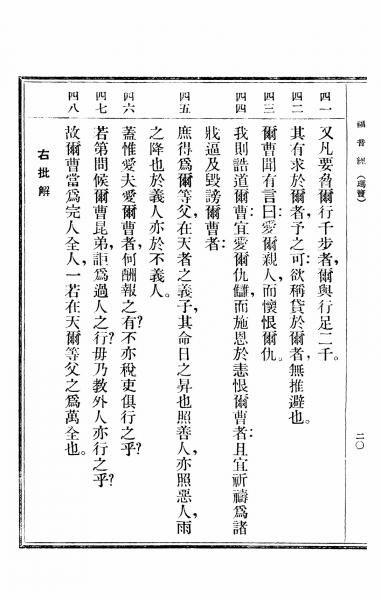 福音經(瑪竇)
二〇
四一 又凡要脅爾行千步者,爾與行足二千。
四二 其有求於爾者,予之;可欲稱貸於爾者,無推避也。
四三 爾曹聞有言曰:愛爾親人,而懷恨爾仇。
四四 我則誥道爾曹:宜愛爾仇讎,而施恩於恚恨爾曹者;且宜祈禱爲諸
戕逼及毀謗爾曹者:
四五 庶得爲爾等父,在天者之義子;其命日之昇也照善人,亦照惡人,雨
之降也於義人亦於不義人。
四六 蓋惟愛夫愛爾曹者,何酬報之有?不亦稅吏俱行之乎?
四七 若第問候爾曹昆弟,詎爲過人之行?毋乃教外人亦行之乎?
四八 故爾曹當爲完人全人,一若在天爾等父之爲萬全也。
右批解